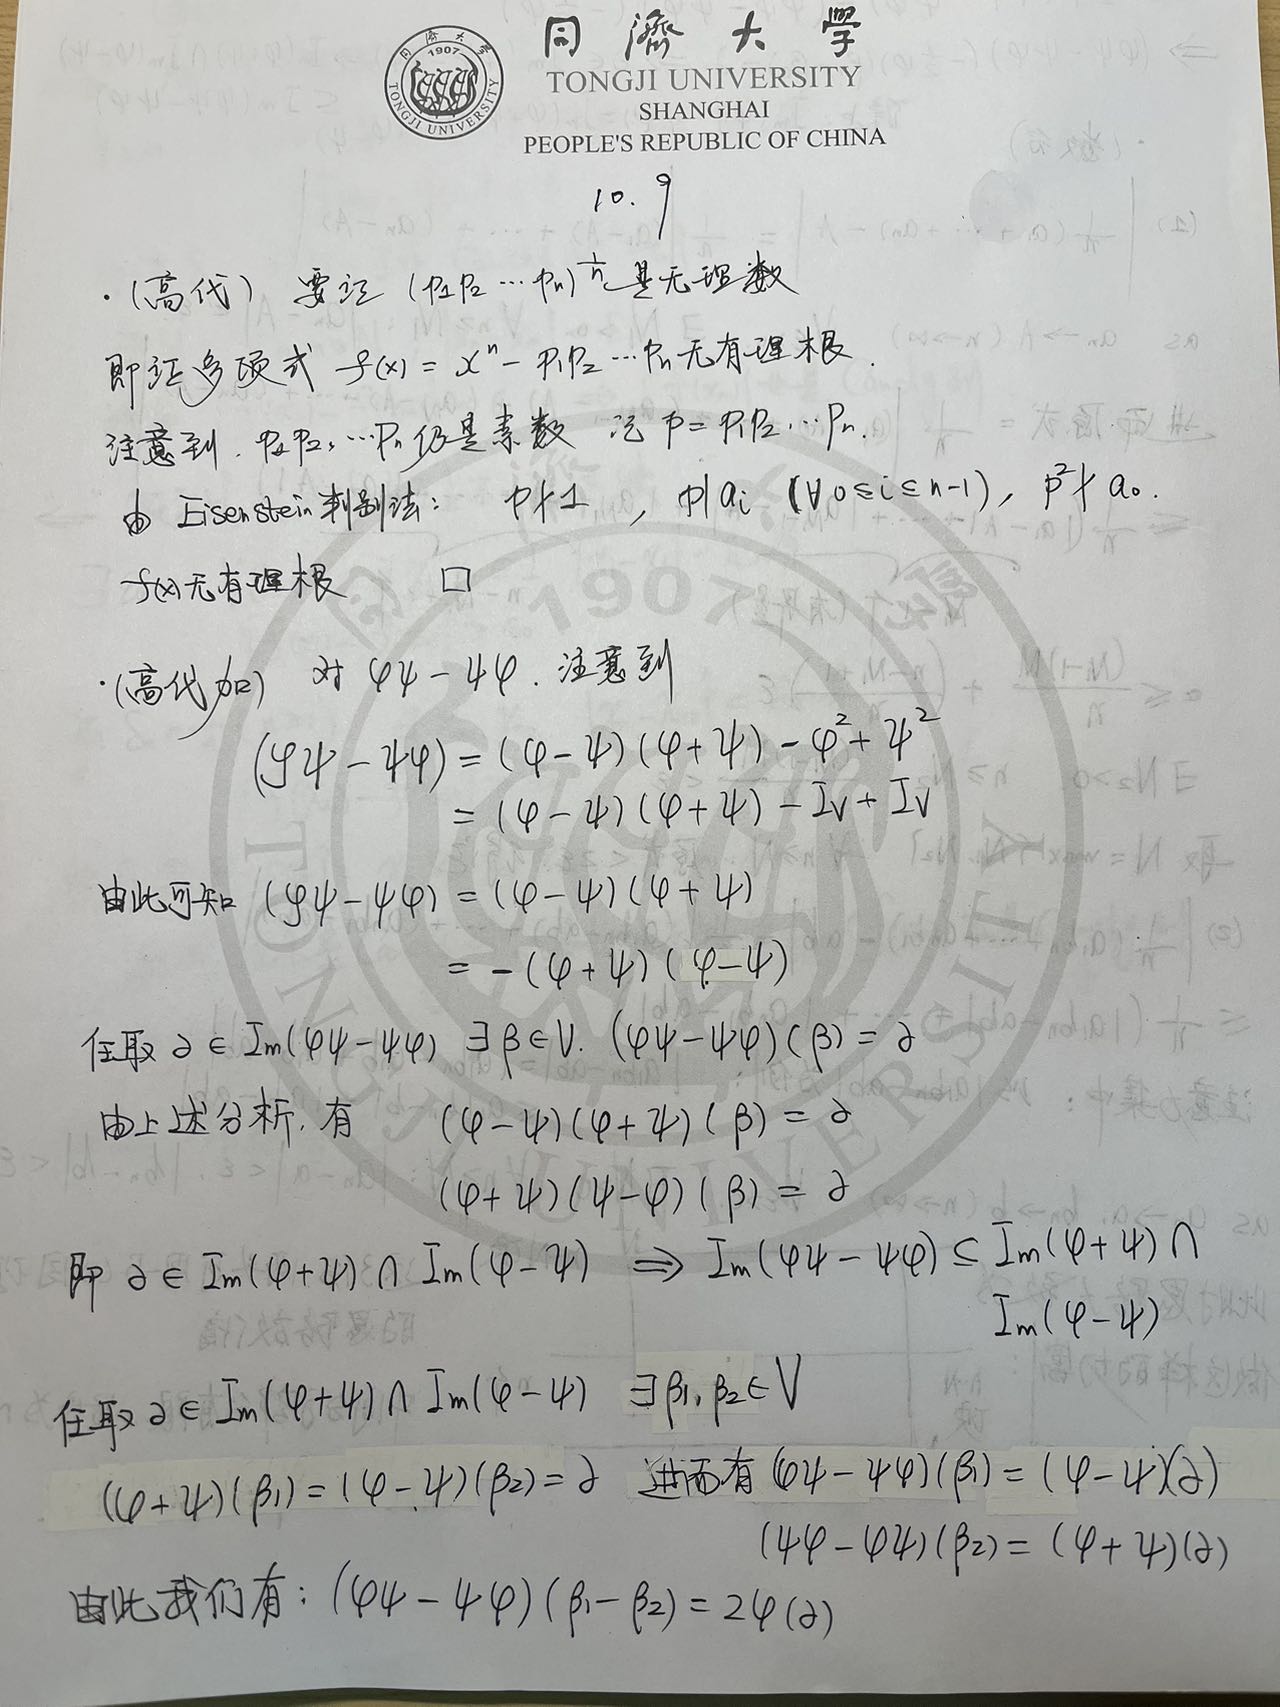 同濟大學
TONGJI UNIVERSITY
SHANGHAI
PEOPLE'S REPUBLIC OF CHINA
10.9
·(高代) 要证 (p₁p₂⋯pₙ)^{1/n} 是无理数
即证多项式 f(x) = xⁿ - p₁p₂⋯pₙ 无有理根.
注意到. p₁p₂,⋯pₙ 仍是素数 记 p = p₁p₂⋯pₙ.
由 Eisenstein 判别法: p∤1, p|aᵢ (∀0≤i≤n-1), p²∤a₀.
f(x)无有理根 □
·(高代加) 对 φψ-ψφ. 注意到
(φψ-ψφ) = (φ-ψ)(φ+ψ) - φ² + ψ²
= (φ-ψ)(φ+ψ) - Iv + Iv
由此可知 (φψ-ψφ) = (φ-ψ)(φ+ψ)
= -(φ+ψ)(φ-ψ)
任取 ∂∈Im(φψ-ψφ) ∃β∈V. (φψ-ψφ)(β) = ∂
由上述分析, 有 (φ-ψ)(φ+ψ)(β) = ∂
(φ+ψ)(ψ-φ)(β) = ∂
即 ∂∈Im(φ+ψ)∩Im(φ-ψ) ⇒ Im(φψ-ψφ) ⊆ Im(φ+ψ)∩
Im(φ-ψ)
任取 ∂∈Im(φ+ψ)∩Im(φ-ψ) ∃β₁,β₂∈V
(φ+ψ)(β₁) = (φ-ψ)(β₂) = ∂ 进而有 (φψ-ψφ)(β₁) = (φ-ψ)(∂)
(ψφ-φψ)(β₂) = (φ+ψ)(∂)
由此我们有: (φψ-ψφ)(β₁-β₂) = 2φ(∂)